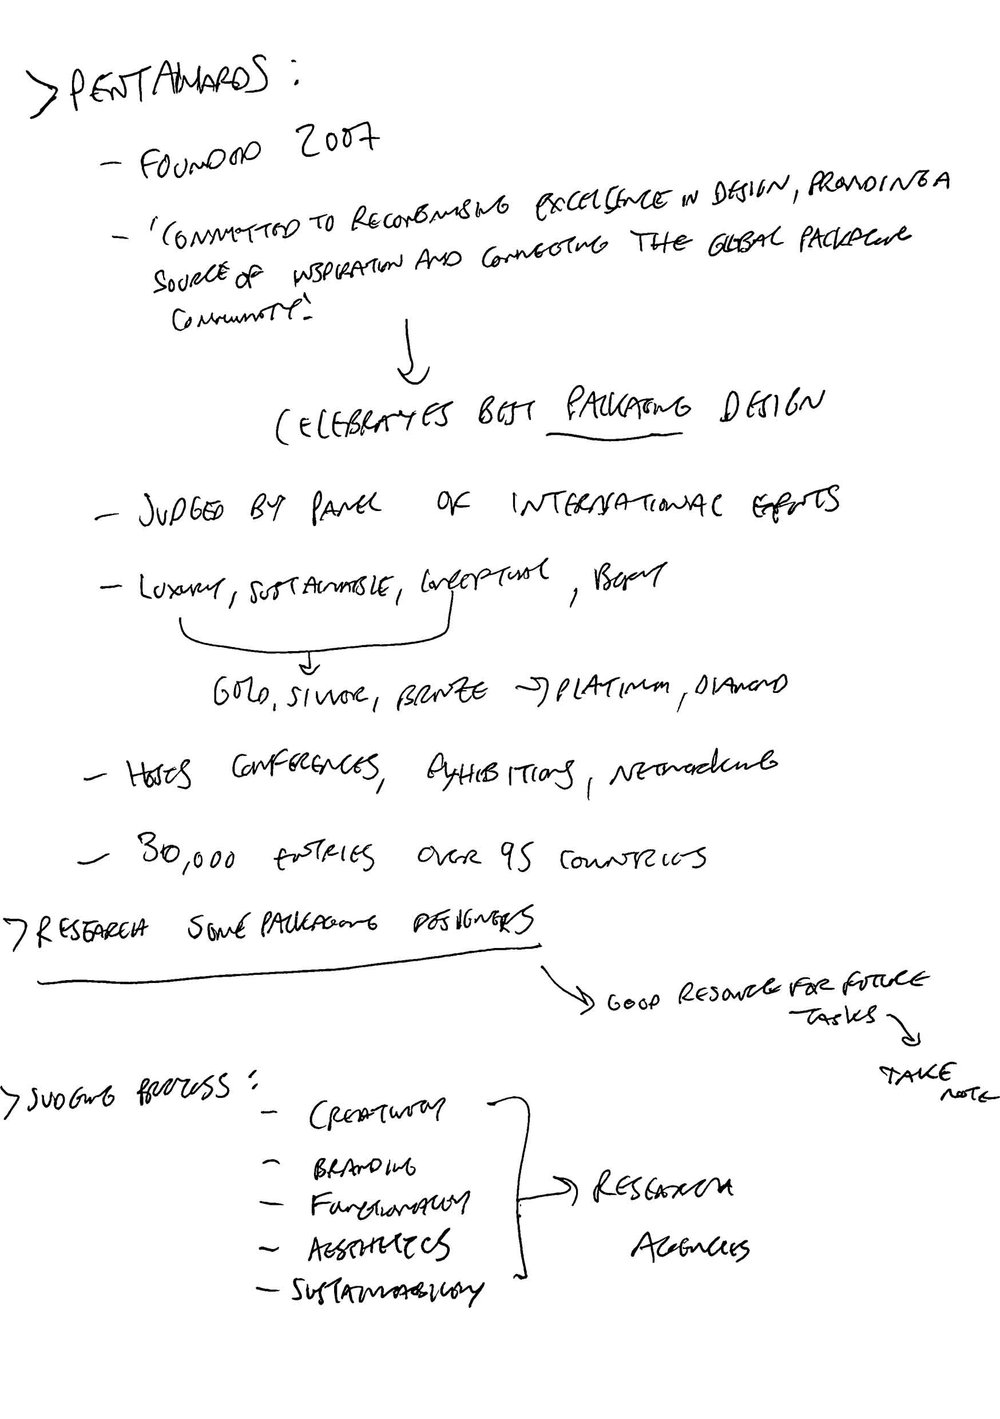 > PENTAWARDS :
- FOUNDED 2007
- 'COMMITTED TO RECOGNISING EXCELLENCE IN DESIGN, PROVIDING A
SOURCE OF INSPIRATION AND CONNECTING THE GLOBAL PACKAGING
COMMUNITY.'
CELEBRATES BEST PACKAGING DESIGN
- JUDGED BY PANEL OF INTERNATIONAL EXPERTS
- LUXURY, SUSTAINABLE, CONCEPTUAL, BEAUTY
GOLD, SILVER, BRONZE → PLATINUM, DIAMOND
- HOSTS CONFERENCES, EXHIBITIONS, NETWORKING
- 30,000 ENTRIES OVER 95 COUNTRIES
> RESEARCH SOME PACKAGING DESIGNERS
→ GOOD RESOURCE FOR FUTURE
TASKS
TAKE
NOTE
> JUDGING PROCESS :
- CREATIVITY
- BRANDING
- FUNCTIONALITY
→ RESEARCH
- AESTHETICS
AGENCIES
- SUSTAINABILITY